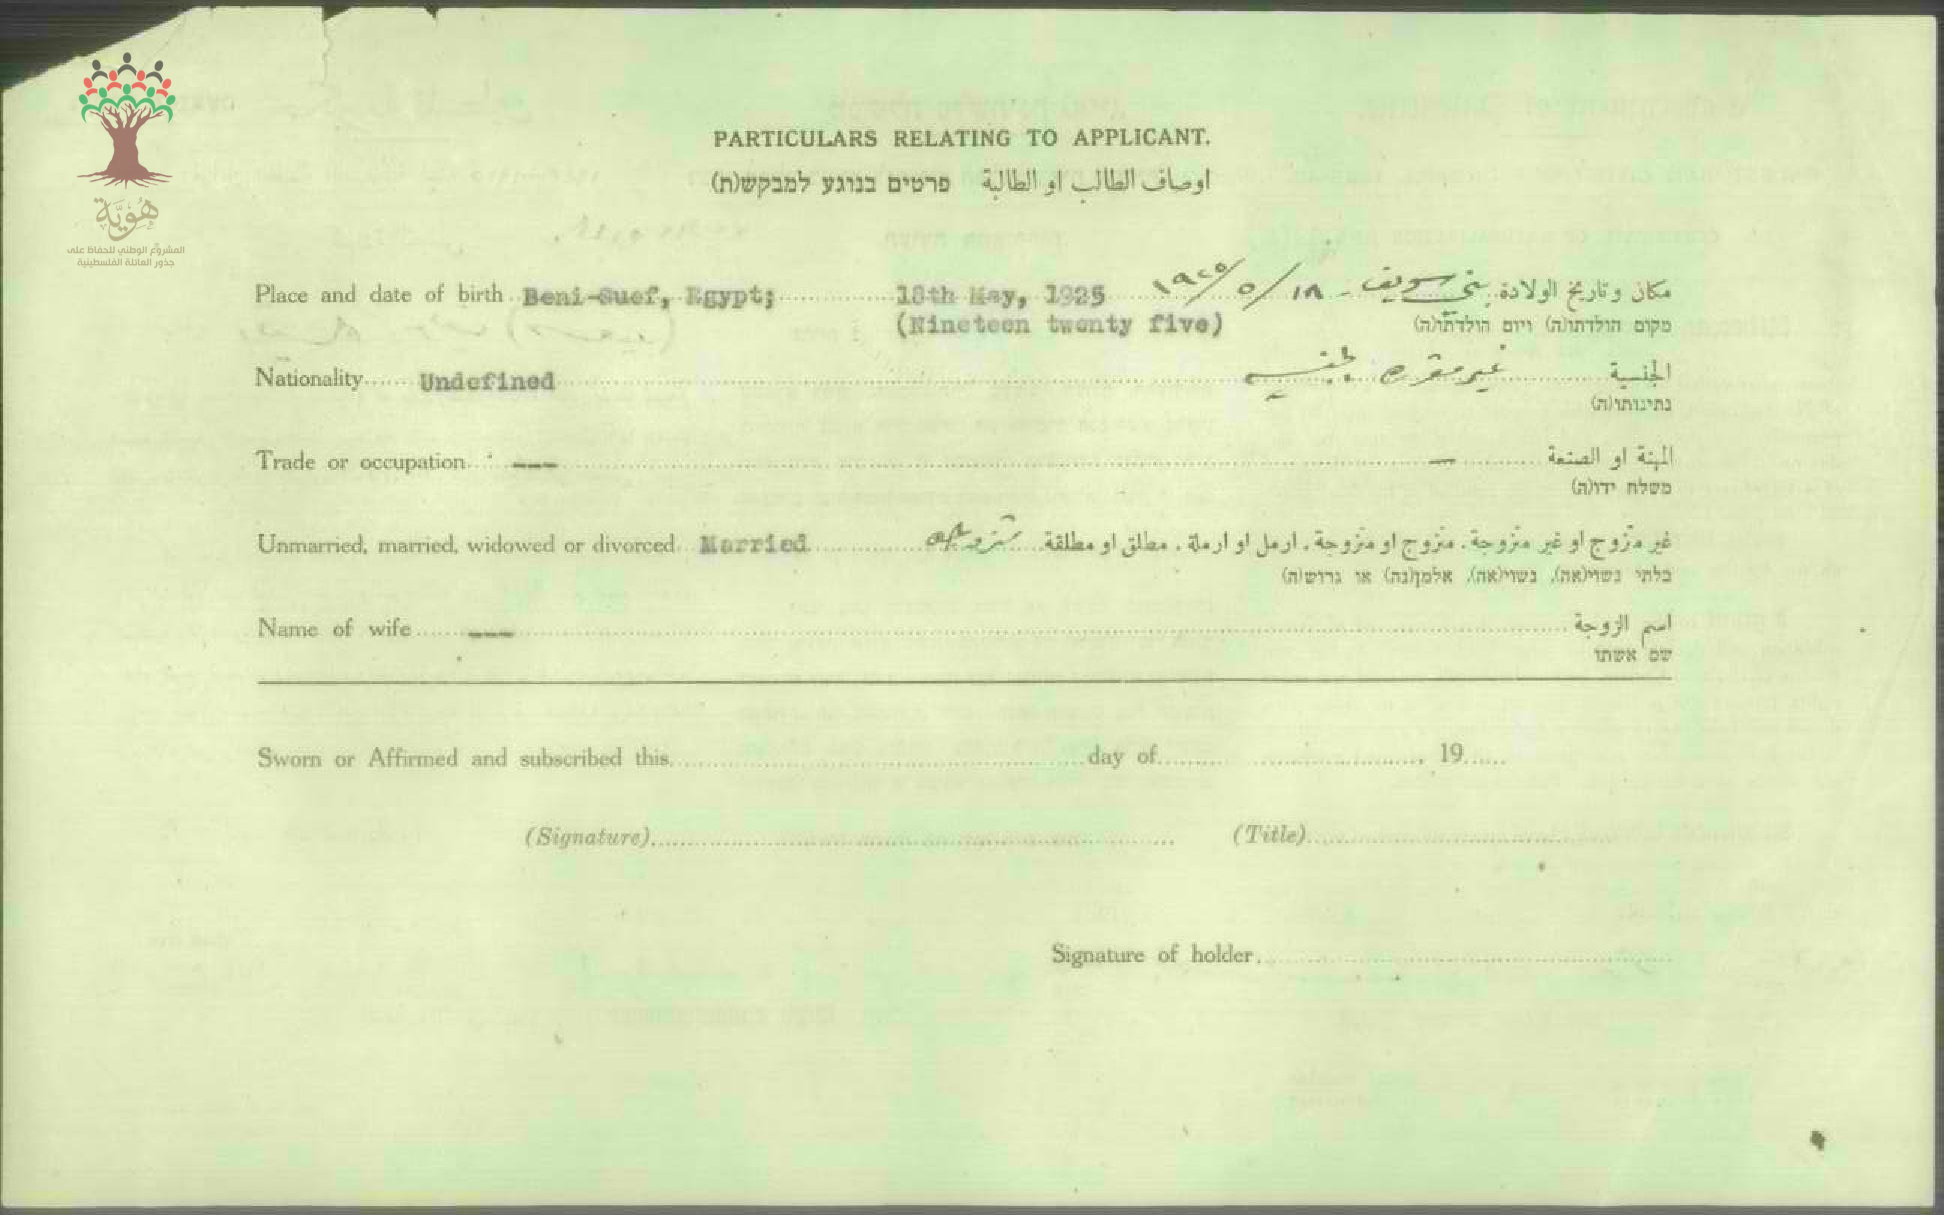 هُوِيَّة
المشروع الوطني للحفاظ على
جذور العائلة الفلسطينية
PARTICULARS RELATING TO APPLICANT.
اوصاف الطالب او الطالبة פרטים בנוגע למבקש(ת)
Place and date of birth Beni-Suef, Egypt; 18th May, 1925 بني سويف - ١٨/٥/١٩٢٥ مكان وتاريخ الولادة
(Nineteen twenty five) מקום הולדתו(ה) ויום הולדתו(ה)
Nationality Undefined غير مقرره الجنسيه الجنسية
נתינותו(ה)
Trade or occupation --- — المهنة او الصنعة
משלח ידו(ה)
Unmarried, married, widowed or divorced Married متزوجه غير متزوج او غير متزوجة، متزوج او متزوجة، ارمل او ارملة، مطلق او مطلقة
בלתי נשוי(אה), נשוי(אה), אלמן(נה) או גרוש(ה)
Name of wife --- اسم الزوجة
שם אשתו
Sworn or Affirmed and subscribed this day of 19
(Signature) (Title)
Signature of holder